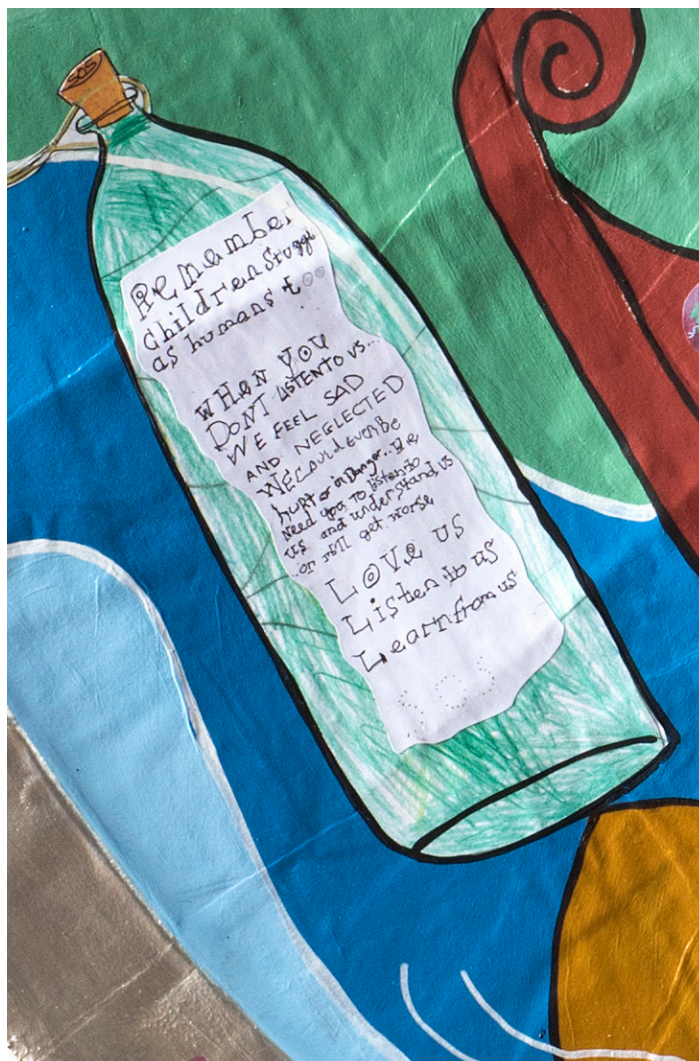 SOS
Remember
children struggle
as humans too
WHEN YOU
DONT LISTEN TO US...
WE FEEL SAD
AND NEGLECTED
WE could even Be
hurt or in Danger... We
Need you to listen to
us and understand us
or it'll get worse
LOVE US
Listen to us
Learn from us
SOS